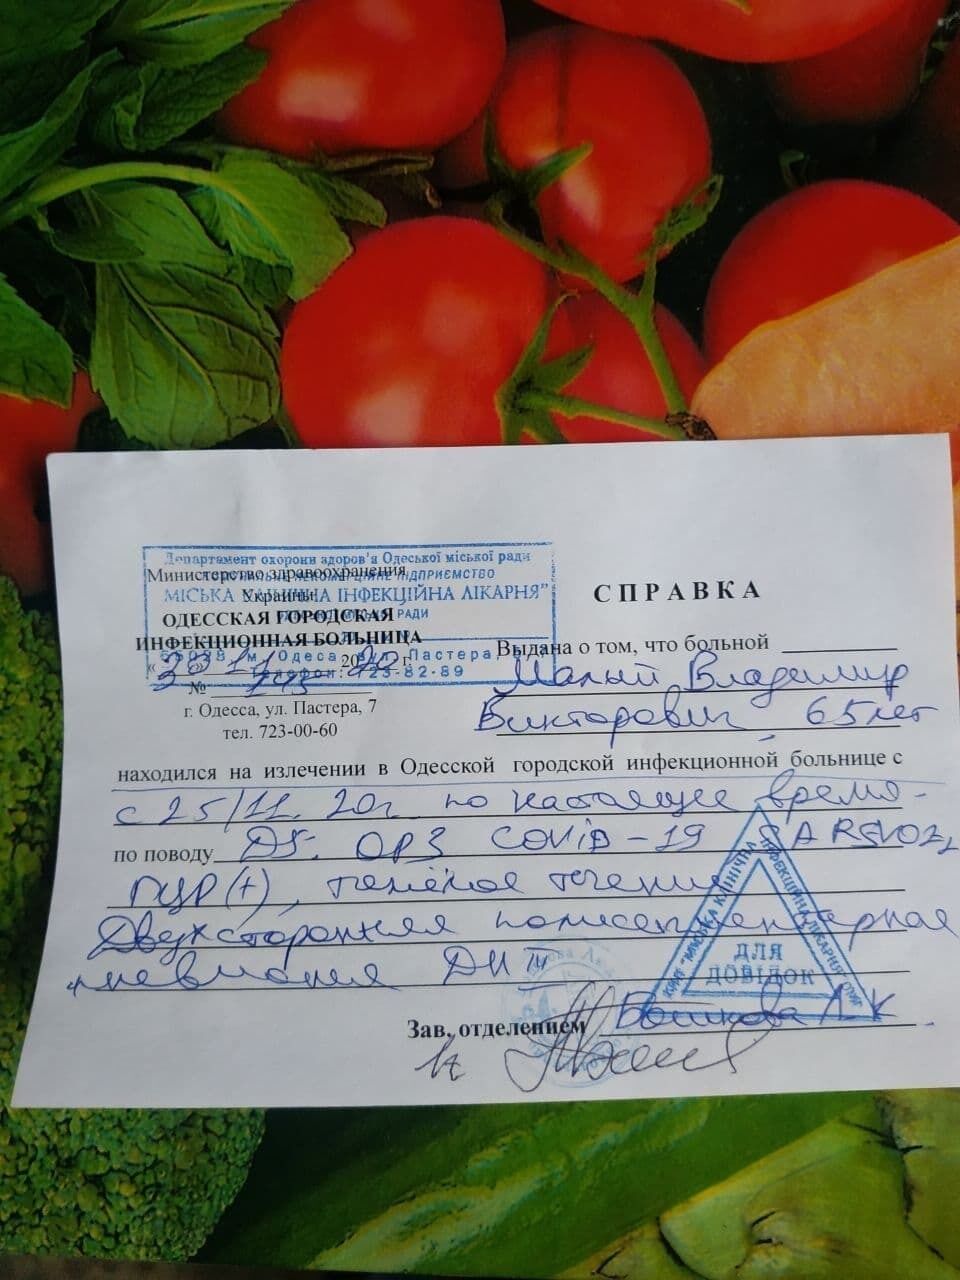 Департамент охорони здоров'я Одеської міської ради
Министерство здравоохранения
Украины
МІСЬКА КЛІНІЧНА ІНФЕКЦІЙНА ЛІКАРНЯ"
ОДЕССКАЯ ГОРОДСКАЯ
ИНФЕКЦИОННАЯ БОЛЬНИЦА
м. Одеса, вул. Пастера,
2020 г.
№
г. Одесса, ул. Пастера, 7
тел. 723-00-60
СПРАВКА
Выдана о том, что больной
Малый Владимир
Викторович, 65 лет
находился на излечении в Одесской городской инфекционной больнице с
с 25/11. 20г. по настоящее время
по поводу DS. ОРЗ COVID-19
ПЦР(+), тяжёлое течение
Двухсторонняя полисегментарная
пневмония ДН
КНП "МІСЬКА КЛІНІЧНА ІНФЕКЦІЙНА ЛІКАРНЯ" ОМР
ДЛЯ
ДОВІДОК
Зав. отделением